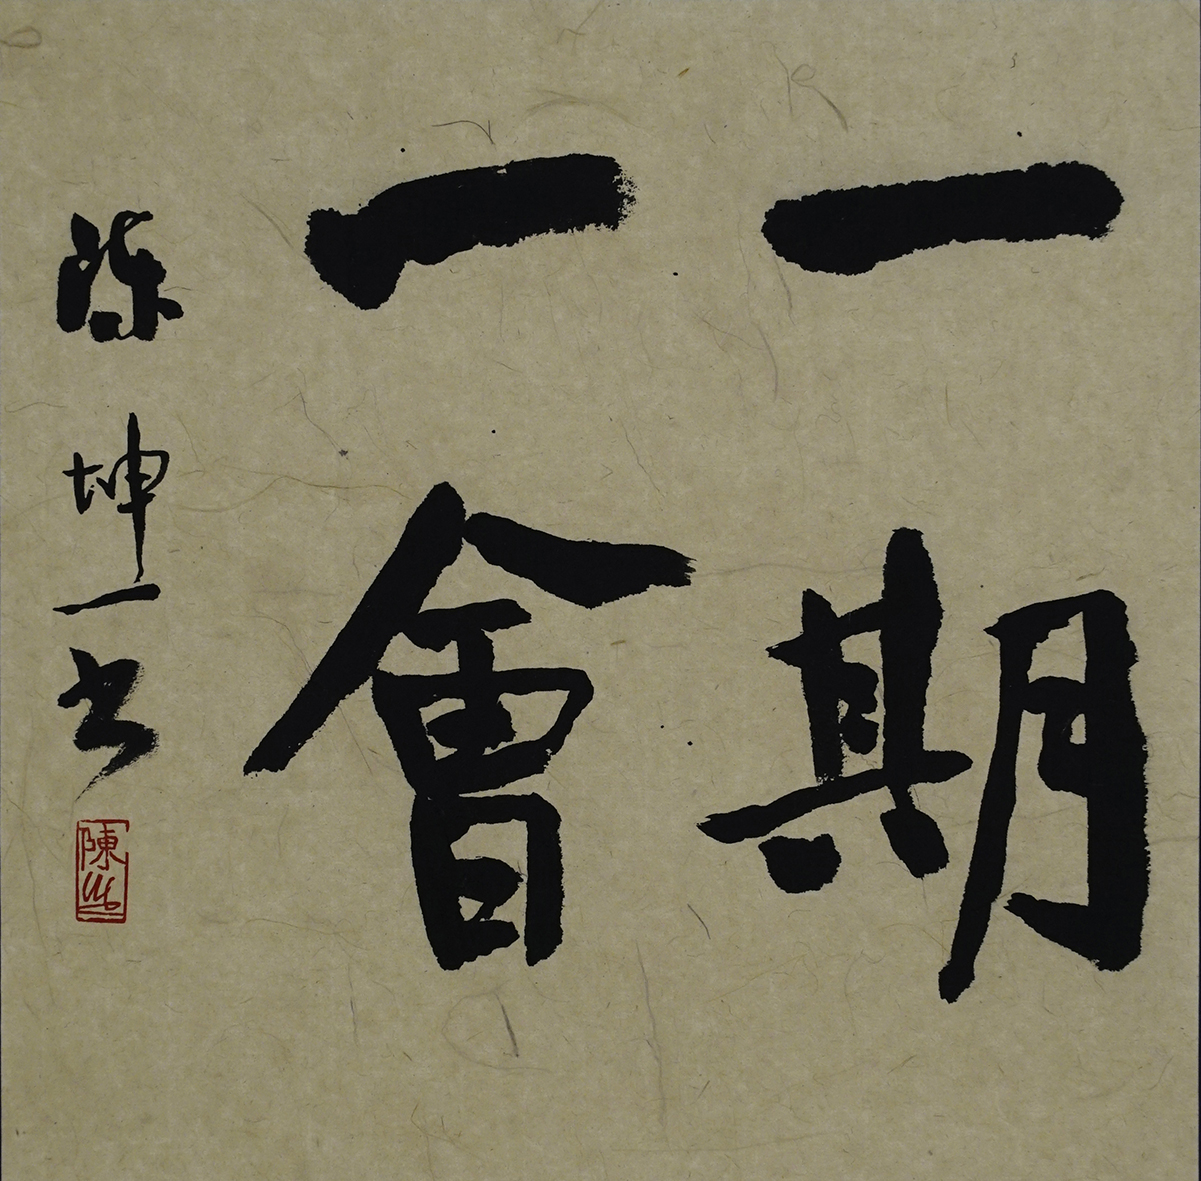 一期
一會
陳坤一书
陳